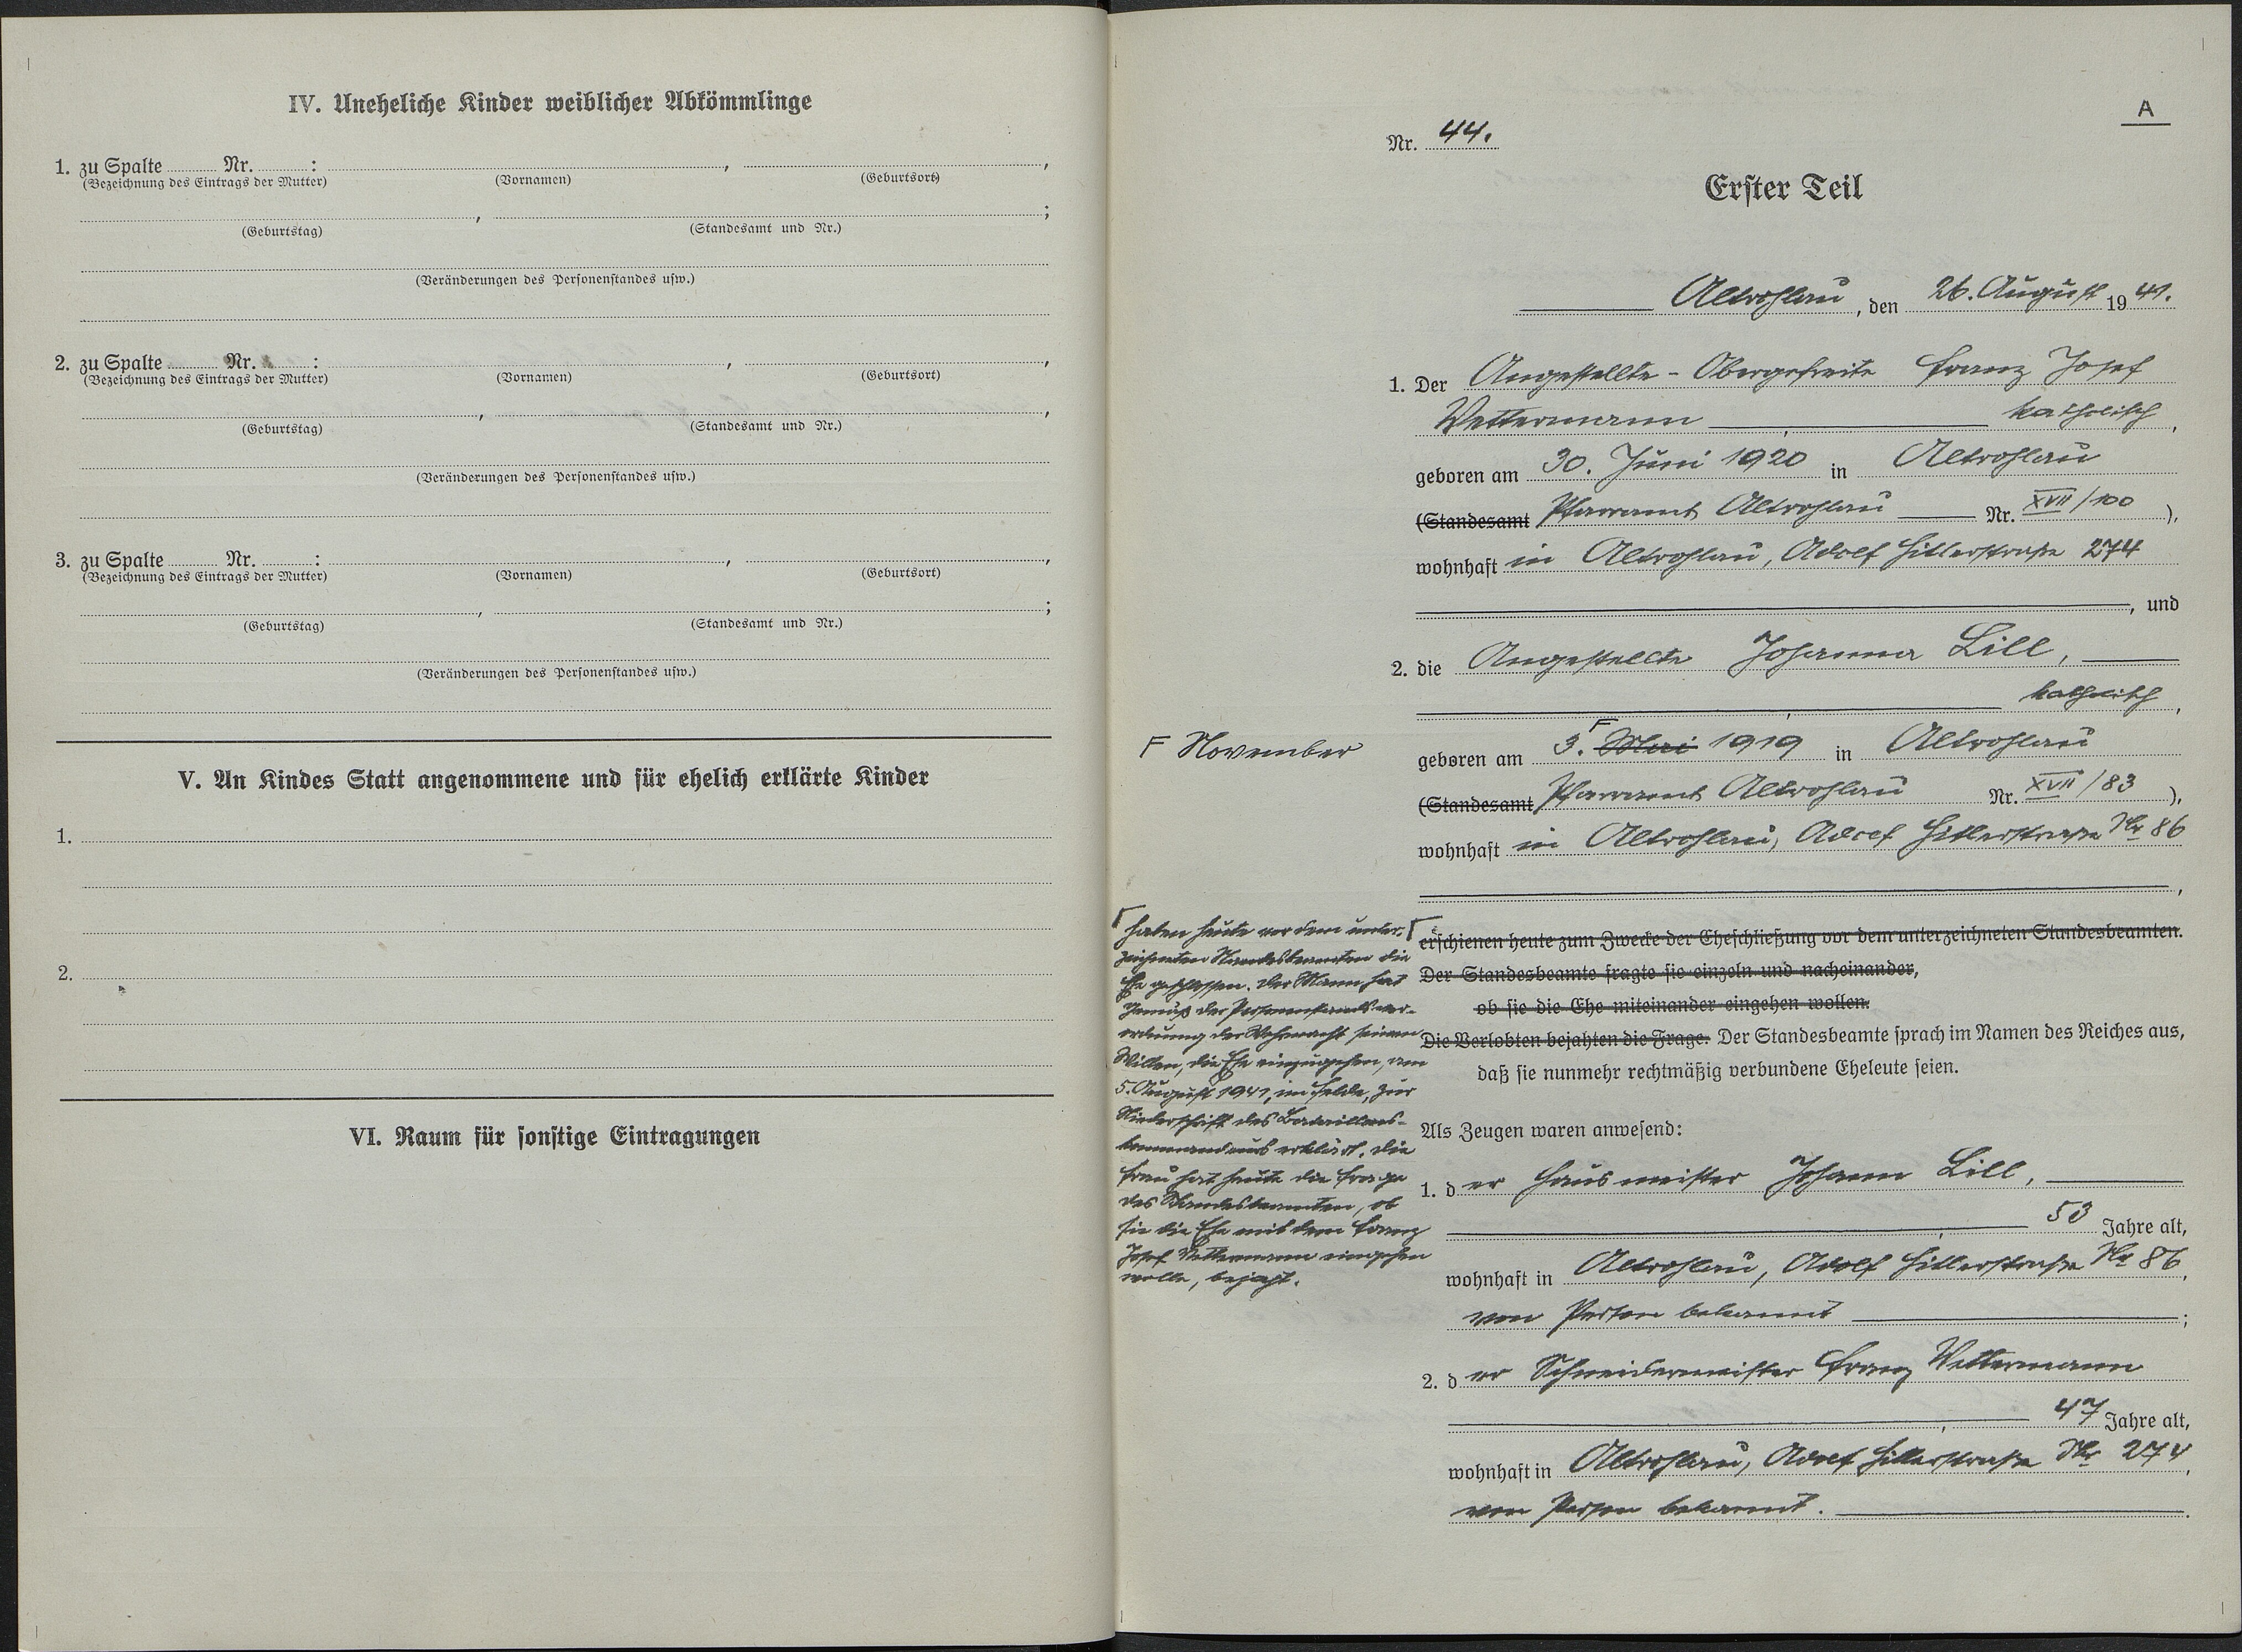 IV. Uneheliche Kinder weiblicher Abkömmlinge
1. zu Spalte Nr. : , ,
(Bezeichnung des Eintrags der Mutter) (Vornamen) (Geburtsort)
, ;
(Geburtstag) (Standesamt und Nr.)
(Veränderungen des Personenstandes usw.)
2. zu Spalte Nr. : , ,
(Bezeichnung des Eintrags der Mutter) (Vornamen) (Geburtsort)
, ,
(Geburtstag) (Standesamt und Nr.)
(Veränderungen des Personenstandes usw.)
3. zu Spalte Nr. : , ,
(Bezeichnung des Eintrags der Mutter) (Vornamen) (Geburtsort)
, ;
(Geburtstag) (Standesamt und Nr.)
(Veränderungen des Personenstandes usw.)
V. An Kindes Statt angenommene und für ehelich erklärte Kinder
1.
2.
VI. Raum für sonstige Eintragungen
A
Nr. 44.
Erster Teil
Altrohlau, den 26. August 1941.
1. Der Angestellte - Obergefreite Franz Josef
Wettermann katholisch,
geboren am 30. Juni 1920 in Altrohlau
(Standesamt Pfarramt Altrohlau Nr. XVII/100),
wohnhaft in Altrohlau, Adolf Hitlerstraße 274
, und
2. die Angestellte Johanna Lill,
katholisch,
F November
geboren am 3. F Mai 1919 in Altrohlau
(Standesamt Pfarramt Altrohlau Nr. XVII/83),
wohnhaft in Altrohlau, Adolf Hitlerstraße Nr 86
,
Γ haben heute vor dem unter-
zeichneten Standesbeamten die
Ehe geschlossen. Der Mann hat
gemäß der Personenstandsver-
ordnung der Wehrmacht seinen
Willen, die Ehe einzugehen, am
5. August 1941, im Felde, zur
Niederschrift des Bataillons-
kommandeurs erklärt. Die
Frau hat heute die Frage
des Standesbeamten, ob
sie die Ehe mit dem Franz
Josef Wettermann eingehen
wolle, bejaht.
Γ erschienen heute zum Zwecke der Eheschließung vor dem unterzeichneten Standesbeamten.
Der Standesbeamte fragte sie einzeln und nacheinander,
ob sie die Ehe miteinander eingehen wollen.
Die Verlobten bejahten die Frage. Der Standesbeamte sprach im Namen des Reiches aus,
daß sie nunmehr rechtmäßig verbundene Eheleute seien.
Als Zeugen waren anwesend:
1. der Hausmeister Johann Lill,
53 Jahre alt,
wohnhaft in Altrohlau, Adolf Hitlerstraße Nr 86,
von Person bekannt ;
2. der Schneidermeister Franz Wettermann
, 47 Jahre alt,
wohnhaft in Altrohlau, Adolf Hitlerstraße Nr 274,
von Person bekannt.